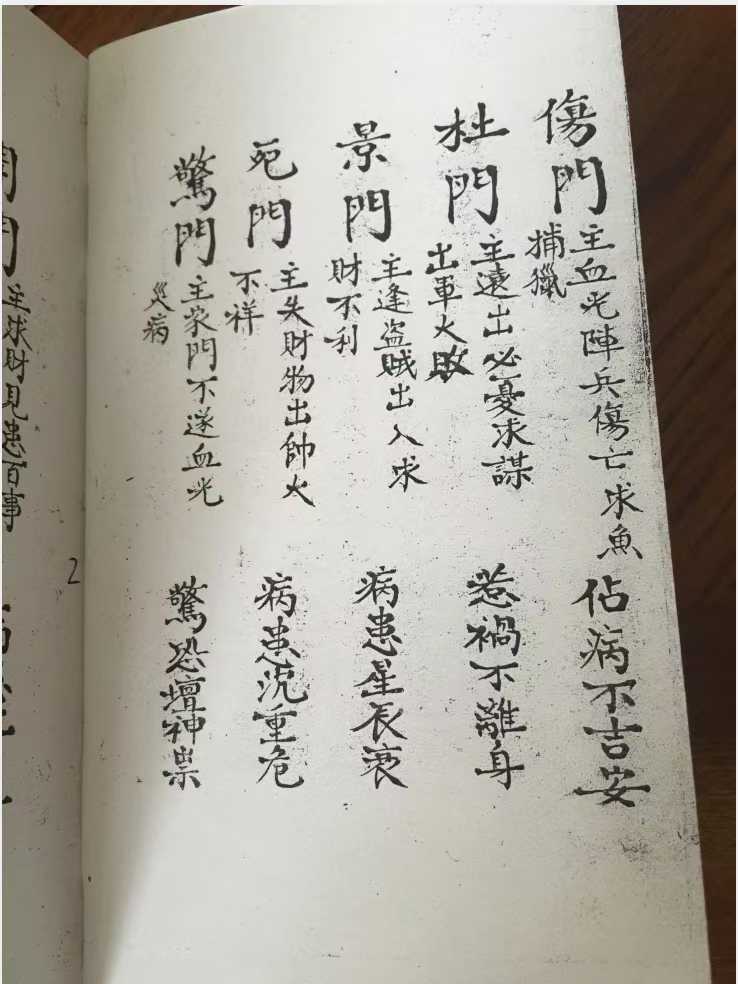 傷門
主血光陣兵傷亡求魚
捕獵
佔病不吉安
杜門
主遠出必憂求謀
出軍大敗
惹禍不離身
景門
主逢盜賊出入求
財不利
病患星辰衰
死門
主失財物出帥大
不祥
病患沉重危
驚門
主家門不遂血光
災病
驚恐壇神祟
2
開門
主求財見患百事